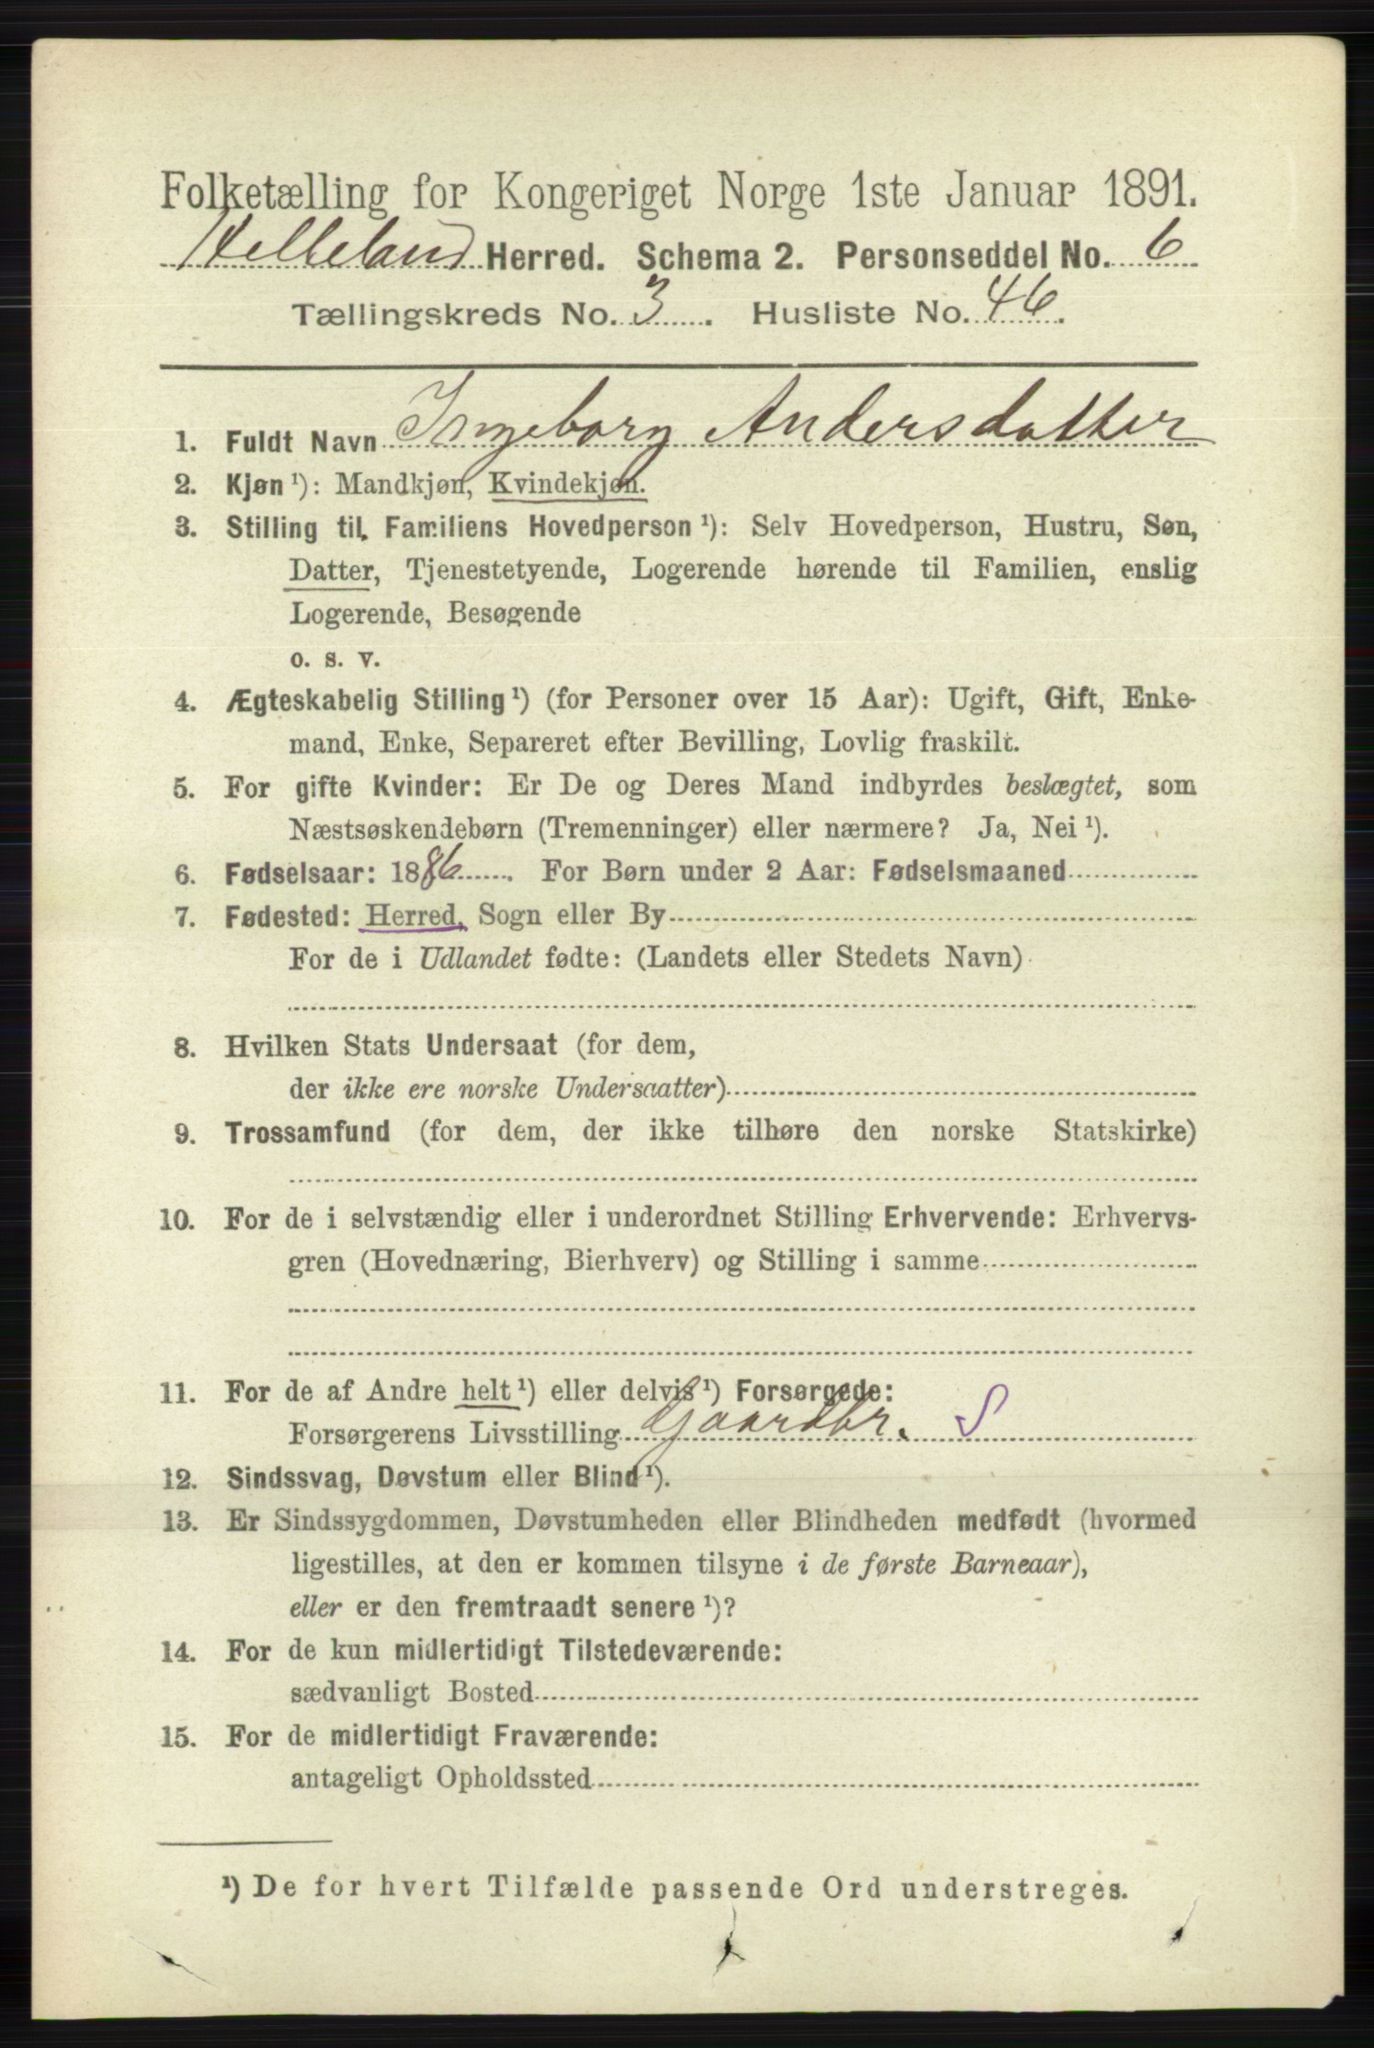 Folketælling for Kongeriget Norge 1ste Januar 1891.
Helleland Herred. Schema 2. Personseddel No. 6
Tællingskreds No. 3. Husliste No. 46.
1. Fuldt Navn Ingeborg Andersdatter
2. Kjøn ¹): Mandkjøn, Kvindekjøn.
3. Stilling til Familiens Hovedperson ¹): Selv Hovedperson, Hustru, Søn,
Datter, Tjenestetyende, Logerende hørende til Familien, enslig
Logerende, Besøgende
o. s. v.
4. Ægteskabelig Stilling ¹) (for Personer over 15 Aar): Ugift, Gift, Enke-
mand, Enke, Separeret efter Bevilling, Lovlig fraskilt.
5. For gifte Kvinder: Er De og Deres Mand indbyrdes beslægtet, som
Næstsøskendebørn (Tremenninger) eller nærmere? Ja, Nei ¹).
6. Fødselsaar: 1886. For Børn under 2 Aar: Fødselsmaaned
7. Fødested: Herred, Sogn eller By
For de i Udlandet fødte: (Landets eller Stedets Navn)
8. Hvilken Stats Undersaat (for dem,
der ikke ere norske Undersaatter)
9. Trossamfund (for dem, der ikke tilhøre den norske Statskirke)
10. For de i selvstændig eller i underordnet Stilling Erhvervende: Erhvervs-
gren (Hovednæring, Bierhverv) og Stilling i samme
11. For de af Andre helt ¹) eller delvis ¹) Forsørgede:
Forsørgerens Livsstilling Gaardbr. S
12. Sindssvag, Døvstum eller Blind ¹).
13. Er Sindssygdommen, Døvstumheden eller Blindheden medfødt (hvormed
ligestilles, at den er kommen tilsyne i de første Barneaar),
eller er den fremtraadt senere ¹)?
14. For de kun midlertidigt Tilstedeværende:
sædvanligt Bosted
15. For de midlertidigt Fraværende:
antageligt Opholdssted
¹) De for hvert Tilfælde passende Ord understreges.